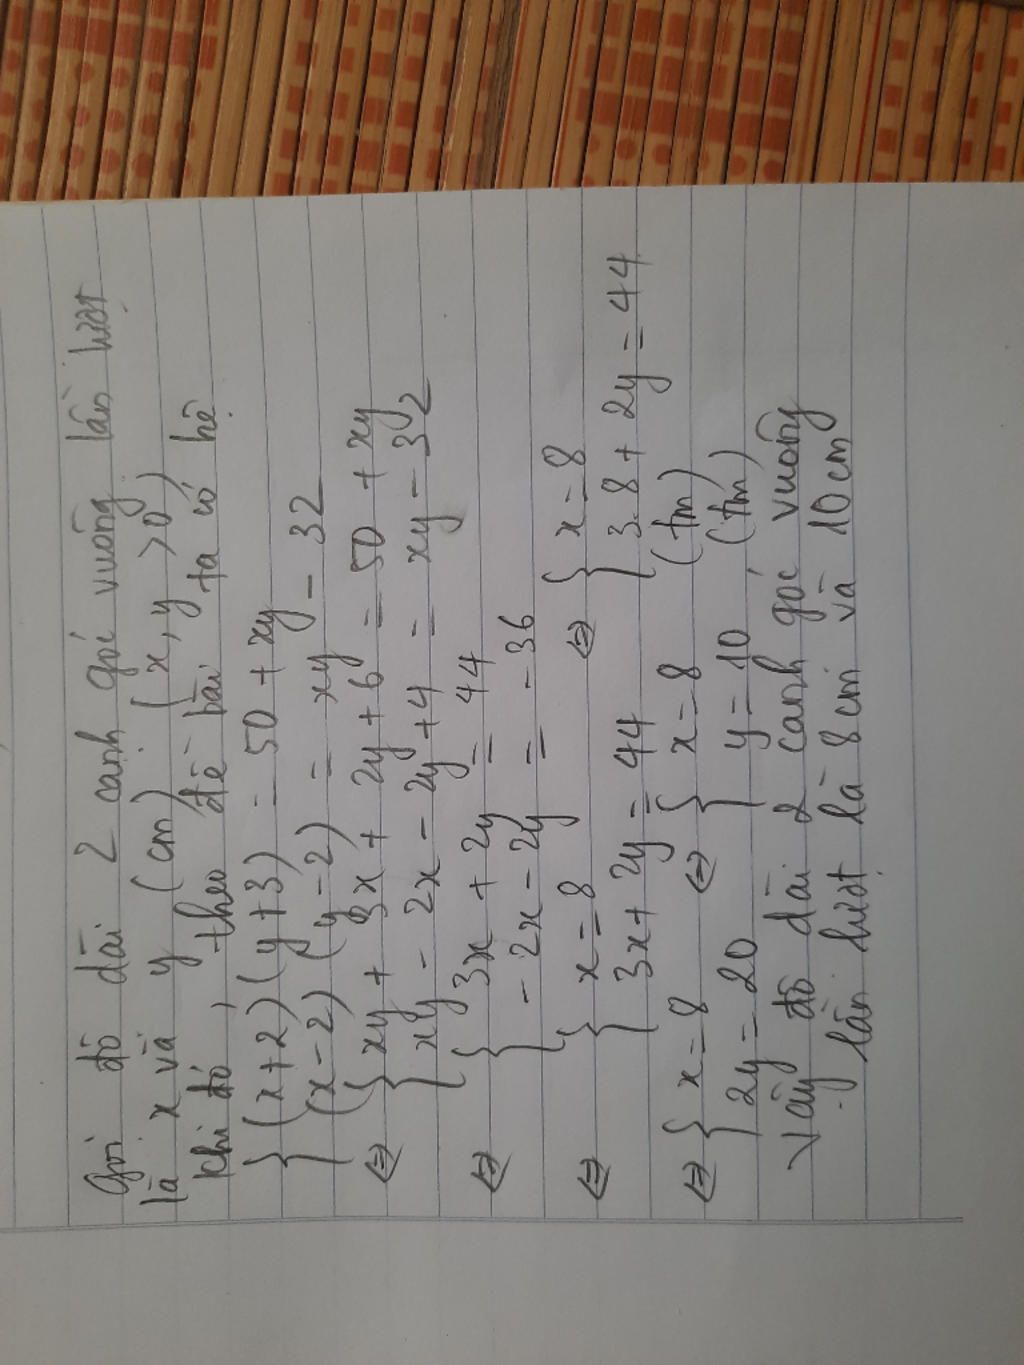 Gọi độ dài 2 cạnh góc vuông lần lượt
là x và y (cm) (x, y > 0)
Khi đó, theo đề bài ta có hệ
{ (x+2)(y+3) = 50 + xy
(x-2)(y-2) = xy - 32
⇔ { xy + 3x + 2y + 6 = 50 + xy
xy - 2x - 2y + 4 = xy - 32
⇔ { 3x + 2y = 44
-2x - 2y = -36
⇔ { x = 8 ⇔ { x = 8
3x + 2y = 44 3.8 + 2y = 44
⇔ { x = 8 ⇔ { x = 8 (tm)
2y = 20 y = 10 (tm)
Vậy độ dài 2 cạnh góc vuông
lần lượt là 8 cm và 10 cm